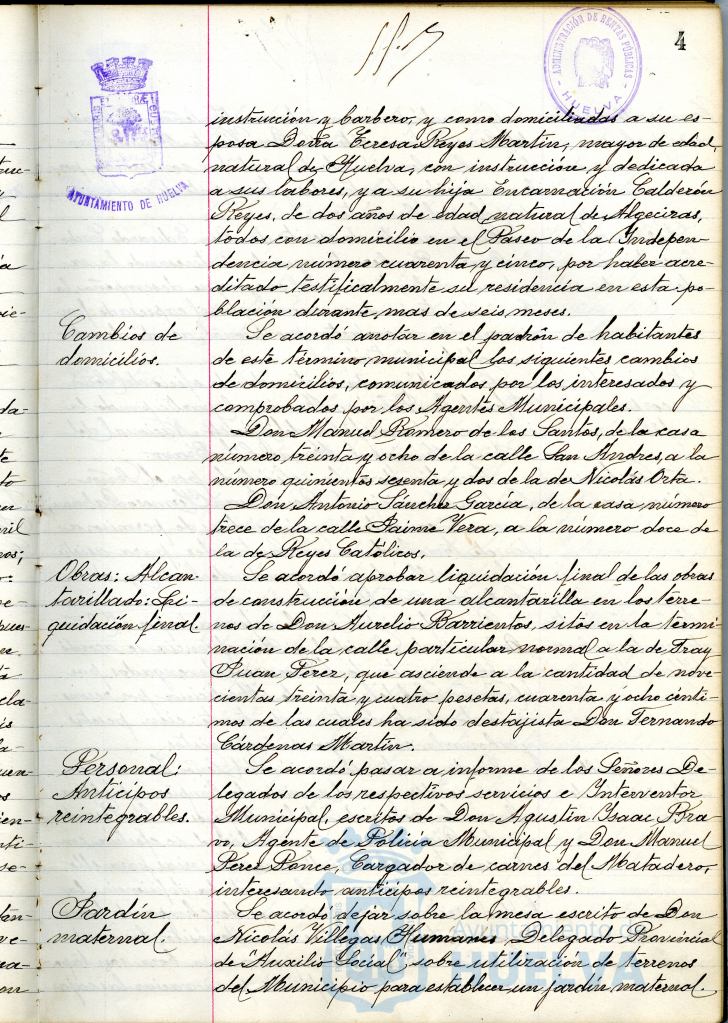 4
ADMINISTRACIÓN DE RENTAS PÚBLICAS
HUELVA
AYUNTAMIENTO DE HUELVA
instrucción y barbero, y como domiciliadas a su es-
posa Doña Teresa Reyes Martín, mayor de edad,
natural de Huelva, con instrucción y dedicada
a sus labores, y a su hija Encarnación Calderón
Reyes, de dos años de edad natural de Algeciras,
todos con domicilio en el Paseo de la Indepen-
dencia número cuarenta y cinco, por haber acre-
ditado testificalmente su residencia en esta po-
blación durante mas de seis meses.
Cambios de
domicilios.
Se acordó anotar en el padrón de habitantes
de este término municipal los siguientes cambios
de domicilios, comunicados por los interesados y
comprobados por los Agentes Municipales.
Don Manuel Romero de los Santos, de la casa
número treinta y ocho de la calle San Andres, a la
número quinientos sesenta y dos de la de Nicolás Orta.
Don Antonio Sánchez García, de la casa número
trece de la calle Jaime Vera, a la número doce de
la de Reyes Católicos.
Obras: Alcan-
tarillado: Li-
quidación final
Se acordó aprobar liquidación final de las obras
de construcción de una alcantarilla en los terre-
nos de Don Aurelio Barrientos, sitos en la termi-
nación de la calle particular normal a la de Fray
Juan Perez, que asciende a la cantidad de nove-
cientas treinta y cuatro pesetas, cuarenta y ocho cénti-
mos de las cuales ha sido destajista Don Fernando
Cárdenas Martín.
Personal:
Anticipos
reintegrables.
Se acordó pasar a informe de los Señores De-
legados de los respectivos servicios e Interventor
Municipal, escritos de Don Agustín Isaac Bra-
vo, Agente de Policía Municipal y Don Manuel
Perez Ponce, Cargador de carnes del Matadero,
interesando anticipos reintegrables.
Jardín
maternal.
Se acordó dejar sobre la mesa escrito de Don
Nicolás Villegas Humanes Delegado Provincial
de "Auxilio Social", sobre utilización de terrenos
del Municipio para establecer un jardín maternal.
Ayuntamiento de
HUELVA